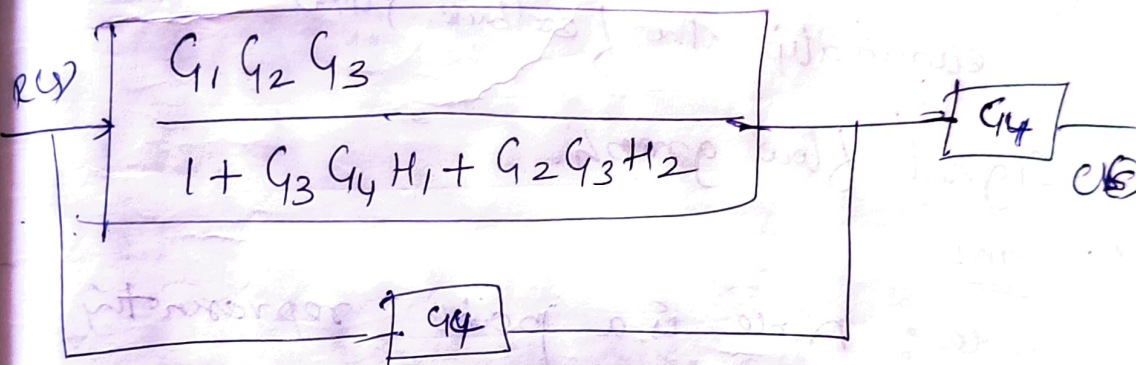 R(s)
G₁ G₂ G₃
1 + G₃ G₄ H₁ + G₂ G₃ H₂
G₄
G₄